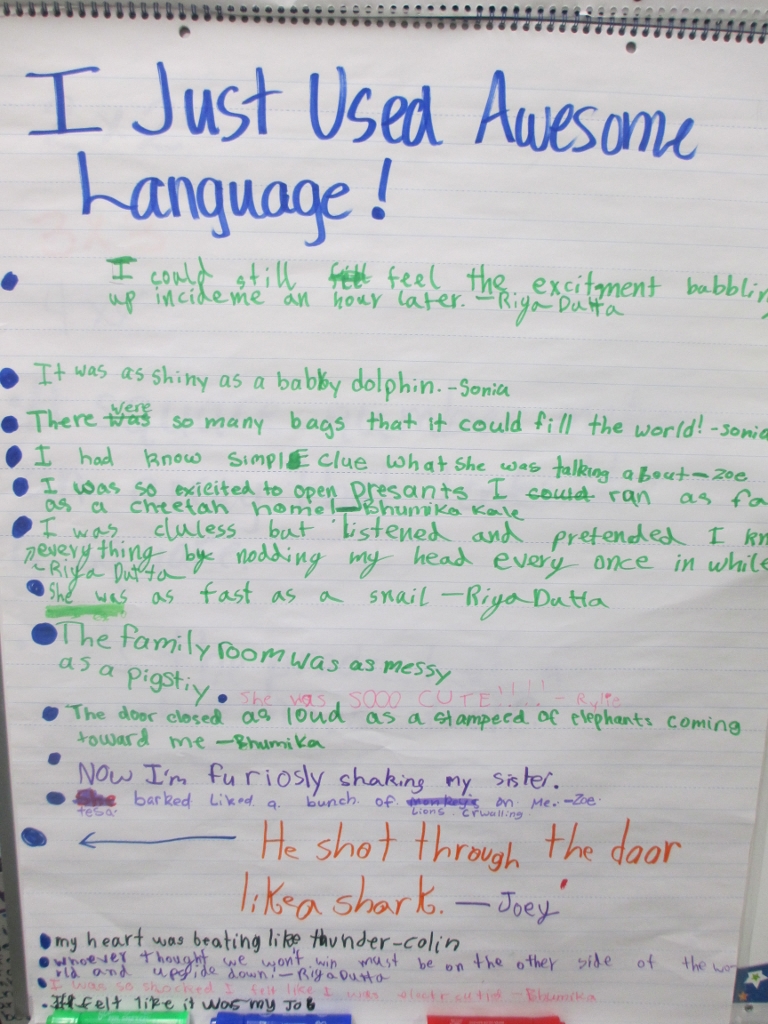 I Just Used Awesome
Language!
I could still feel the excitment babblin
up incideme an hour later. -Riya Dutta
It was as shiny as a babby dolphin. -Sonia
There were so many bags that it could fill the world! -sonia
I had know simple clue what she was talking about - Zoe
I was so exicited to open presants I could ran as fa
as a cheetah home! - Bhumika Kale
I was cluless but listened and pretended I kn
everything by nodding my head every once in while
- Riya Dutta
She was as fast as a snail - Riya Dutta
The family room was as messy
as a pigstiy
she was SOOO CUTE!!!!! - Rylie
The door closed as loud as a stamped of elephants coming
toward me - Bhumika
Now I'm furiosly shaking my sister.
barked liked a bunch of monkeys on me. - Zoe
tesa Lions crwalling
He shot through the door
like a shark. - Joey
my heart was beating like thunder - colin
whoever thought we won't win must be on the other side of the wo
rld and upside down! - Riya Dutta
I was so shocked I felt like I was electricutied - Bhumika
It felt like it was my job